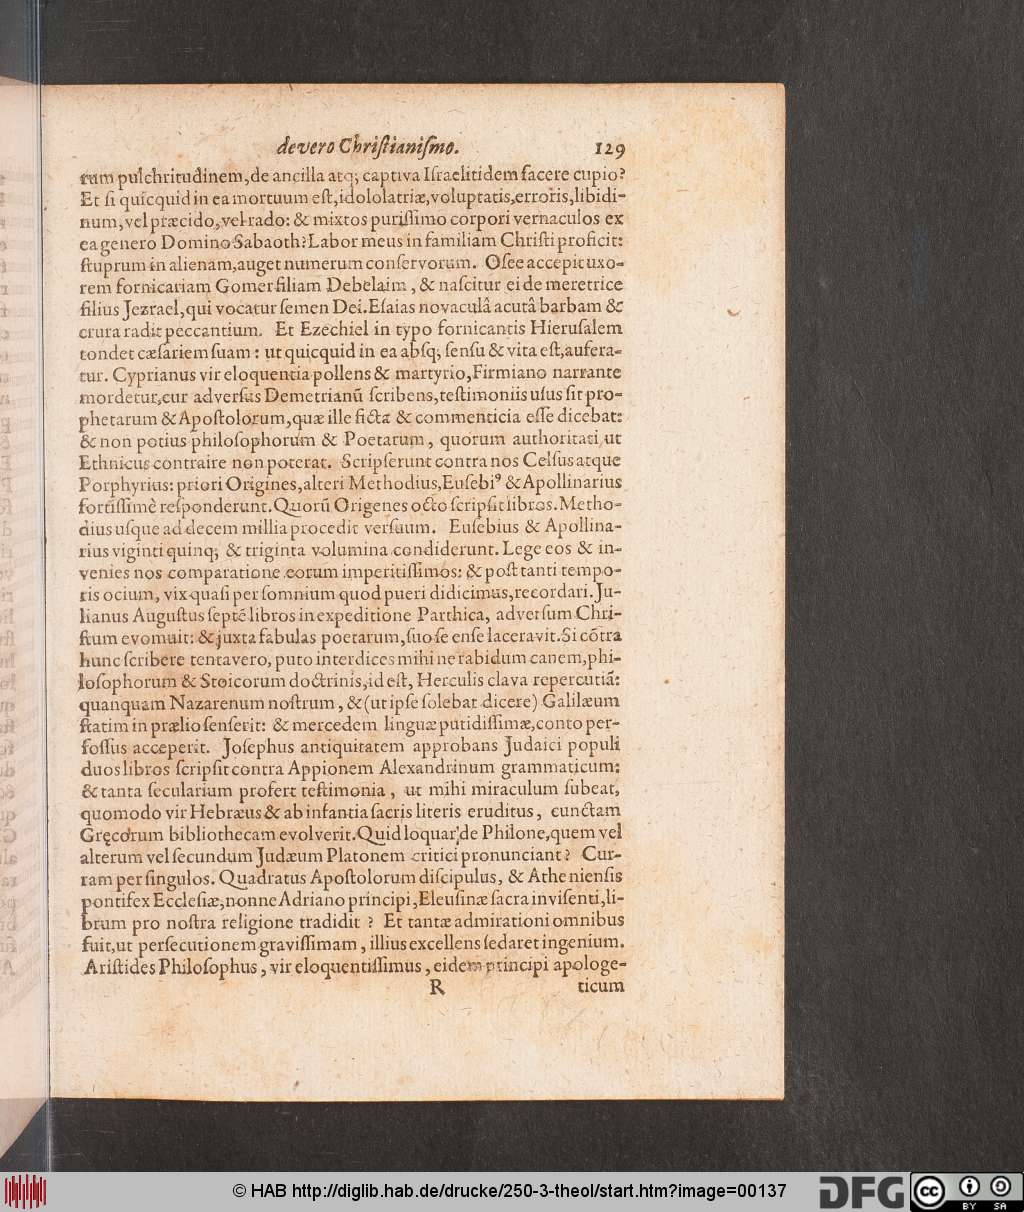 de vero Chriſtianiſmo. 129
rum pulchritudinem, de ancilla atq; captiva Iſraelitidem facere cupio?
Et ſi quicquid in ea mortuum eſt, idololatriæ, voluptatis, erroris, libidi-
num, vel præcido, vel rado: & mixtos puriſſimo corpori vernaculos ex
ea genero Domino Sabaoth? Labor meus in familiam Chriſti proficit:
ſtuprum in alienam, auget numerum conſervorum. Oſee accepit uxo-
rem fornicariam Gomer filiam Debelaim, & naſcitur ei de meretrice
filius Jezrael, qui vocatur ſemen Dei. Eſaias novaculâ acutâ barbam &
crura radit peccantium. Et Ezechiel in typo fornicantis Hieruſalem
tondet cæſariem ſuam: ut quicquid in ea abſq; ſenſu & vita eſt, aufera-
tur. Cyprianus vir eloquentia pollens & martyrio, Firmiano narrante
mordetur, cur adverſus Demetrianū ſcribens, teſtimoniis uſus ſit pro-
phetarum & Apoſtolorum, quæ ille ficta & commenticia eſſe dicebat:
& non potius philoſophorum & Poetarum, quorum authoritati ut
Ethnicus contraire non poterat. Scripſerunt contra nos Celſus atque
Porphyrius: priori Origines, alteri Methodius, Euſebiꝰ & Apollinarius
fortiſſimè reſponderunt. Quorū Origenes octo ſcripſit libros. Metho-
dius uſque ad decem millia procedit verſuum. Euſebius & Apollina-
rius viginti quinq; & triginta volumina condiderunt. Lege eos & in-
venies nos comparatione eorum imperitiſſimos: & poſt tanti tempo-
ris ocium, vix quaſi per ſomnium quod pueri didicimus, recordari. Ju-
lianus Auguſtus ſeptē libros in expeditione Parthica, adverſum Chri-
ſtum evomuit: & juxta fabulas poetarum, ſuo ſe enſe laceravit. Si cōtra
hunc ſcribere tentavero, puto interdices mihi ne rabidum canem, phi-
loſophorum & Stoicorum doctrinis, id eſt, Herculis clava repercutiā:
quanquam Nazarenum noſtrum, & (ut ipſe ſolebat dicere) Galilæum
ſtatim in prælio ſenſerit: & mercedem linguæ putidiſſimæ, conto per-
foſſus acceperit. Joſephus antiquitatem approbans Judaici populi
duos libros ſcripſit contra Appionem Alexandrinum grammaticum:
& tanta ſecularium profert teſtimonia, ut mihi miraculum ſubeat,
quomodo vir Hebræus & ab infantia ſacris literis eruditus, cunctam
Gręcorum bibliothecam evolverit. Quid loquar de Philone, quem vel
alterum vel ſecundum Judæum Platonem critici pronunciant? Cur-
ram per ſingulos. Quadratus Apoſtolorum diſcipulus, & Athenienſis
pontifex Eccleſiæ, nonne Adriano principi, Eleuſinæ ſacra inviſenti, li-
brum pro noſtra religione tradidit? Et tantæ admirationi omnibus
fuit, ut perſecutionem graviſſimam, illius excellens ſedaret ingenium.
Ariſtides Philoſophus, vir eloquentiſſimus, eidem principi apologe-
R ticum
© HAB http://diglib.hab.de/drucke/250-3-theol/start.htm?image=00137
DFG
cc BY SA